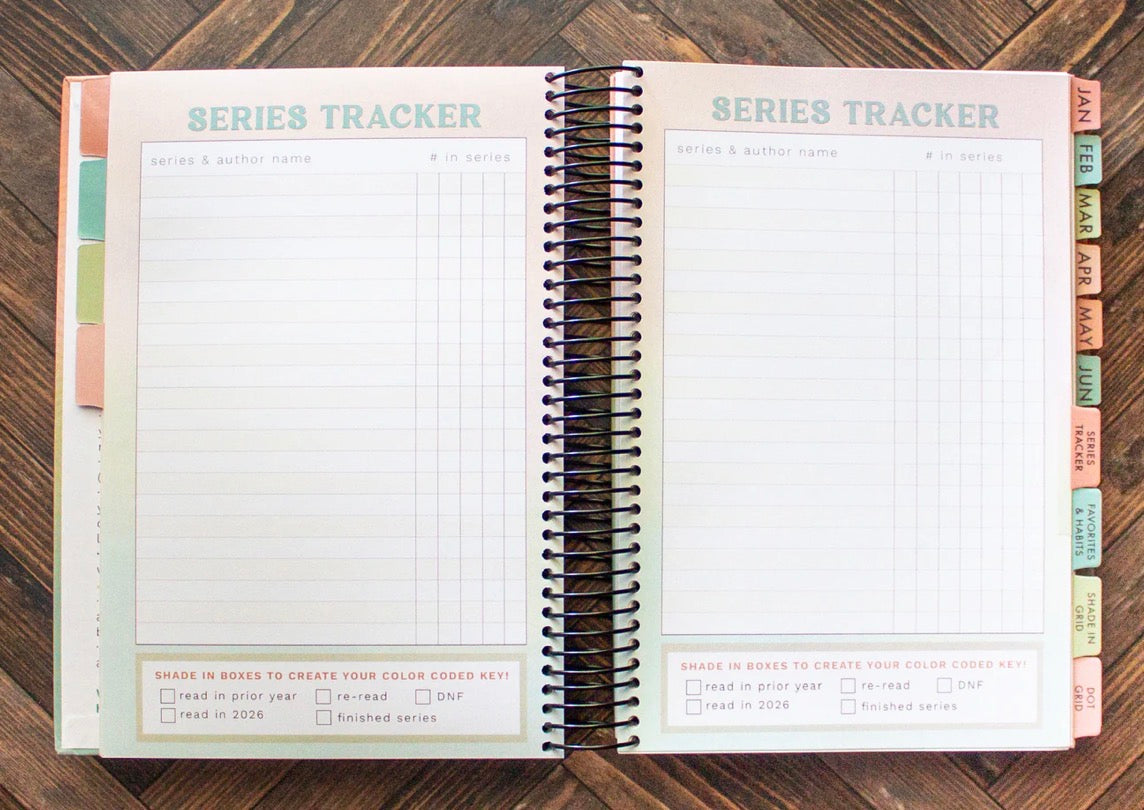 SERIES TRACKER
series & author name # in series
SHADE IN BOXES TO CREATE YOUR COLOR CODED KEY!
read in prior year re-read DNF
read in 2026 finished series
SERIES TRACKER
series & author name # in series
SHADE IN BOXES TO CREATE YOUR COLOR CODED KEY!
read in prior year re-read DNF
read in 2026 finished series
JAN
FEB
MAR
APR
MAY
JUN
SERIES
TRACKER
FAVORITES
& HABITS
SHADE IN
GRID
DOT
GRID